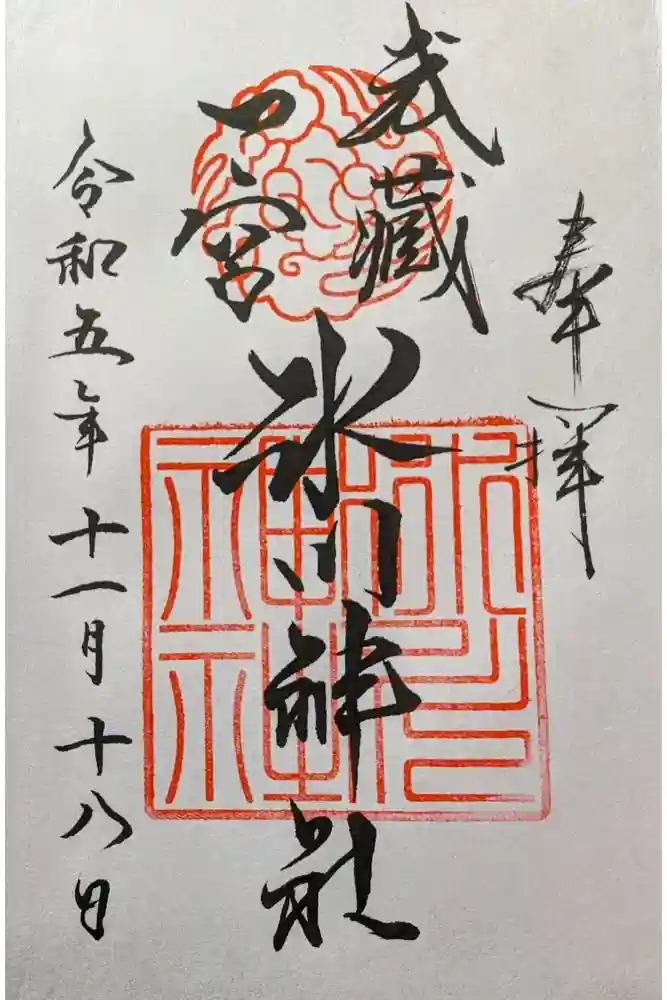 奉拝
武蔵
一宮
氷川神社
令和五年十一月十八日
氷川
神社